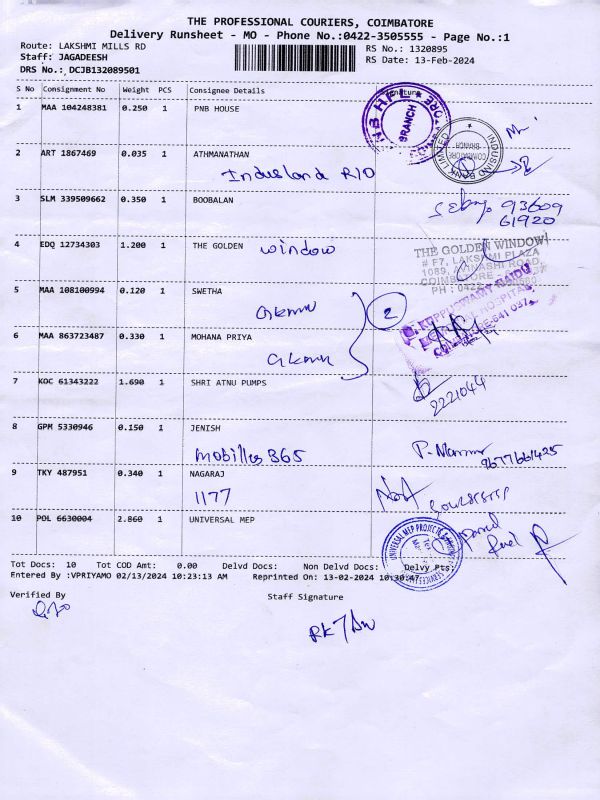 THE PROFESSIONAL COURIERS, COIMBATORE
Delivery Runsheet - MO - Phone No.:0422-3505555 - Page No.:1
Route: LAKSHMI MILLS RD RS No.: 1320895
Staff: JAGADEESH RS Date: 13-Feb-2024
DRS No.: DCJB132089501
S No Consignment No Weight PCS Consignee Details Signature
1 MAA 104248381 0.250 1 PNB HOUSE
BRANCH
2 ART 1867469 0.035 1 ATHMANATHAN
INDUSIND BANK LIMITED COIMBATORE BRANCH
Indusland R/O
3 SLM 339509662 0.350 1 BOOBALAN
93609
61920
4 EDQ 12734303 1.200 1 THE GOLDEN window
THE GOLDEN WINDOW
# F7, LAKSHMI PLAZA
1089, AVINASHI ROAD,
5 MAA 108100994 0.120 1 SWETHA
2
6 MAA 863723487 0.330 1 MOHANA PRIYA
7 KOC 61343222 1.690 1 SHRI ATNU PUMPS
2221044
8 GPM 5330946 0.150 1 JENISH
mobilles 365
9677661425
9 TKY 487951 0.340 1 NAGARAJ
1177
10 POL 6630004 2.860 1 UNIVERSAL MEP
UNIVERSAL MEP PROJECTS
Tot Docs: 10 Tot COD Amt: 0.00 Delvd Docs: Non Delvd Docs: Delvy Pts:
Entered By :VPRIYAMO 02/13/2024 10:23:13 AM Reprinted On: 13-02-2024 10:30:47
Verified By Staff Signature